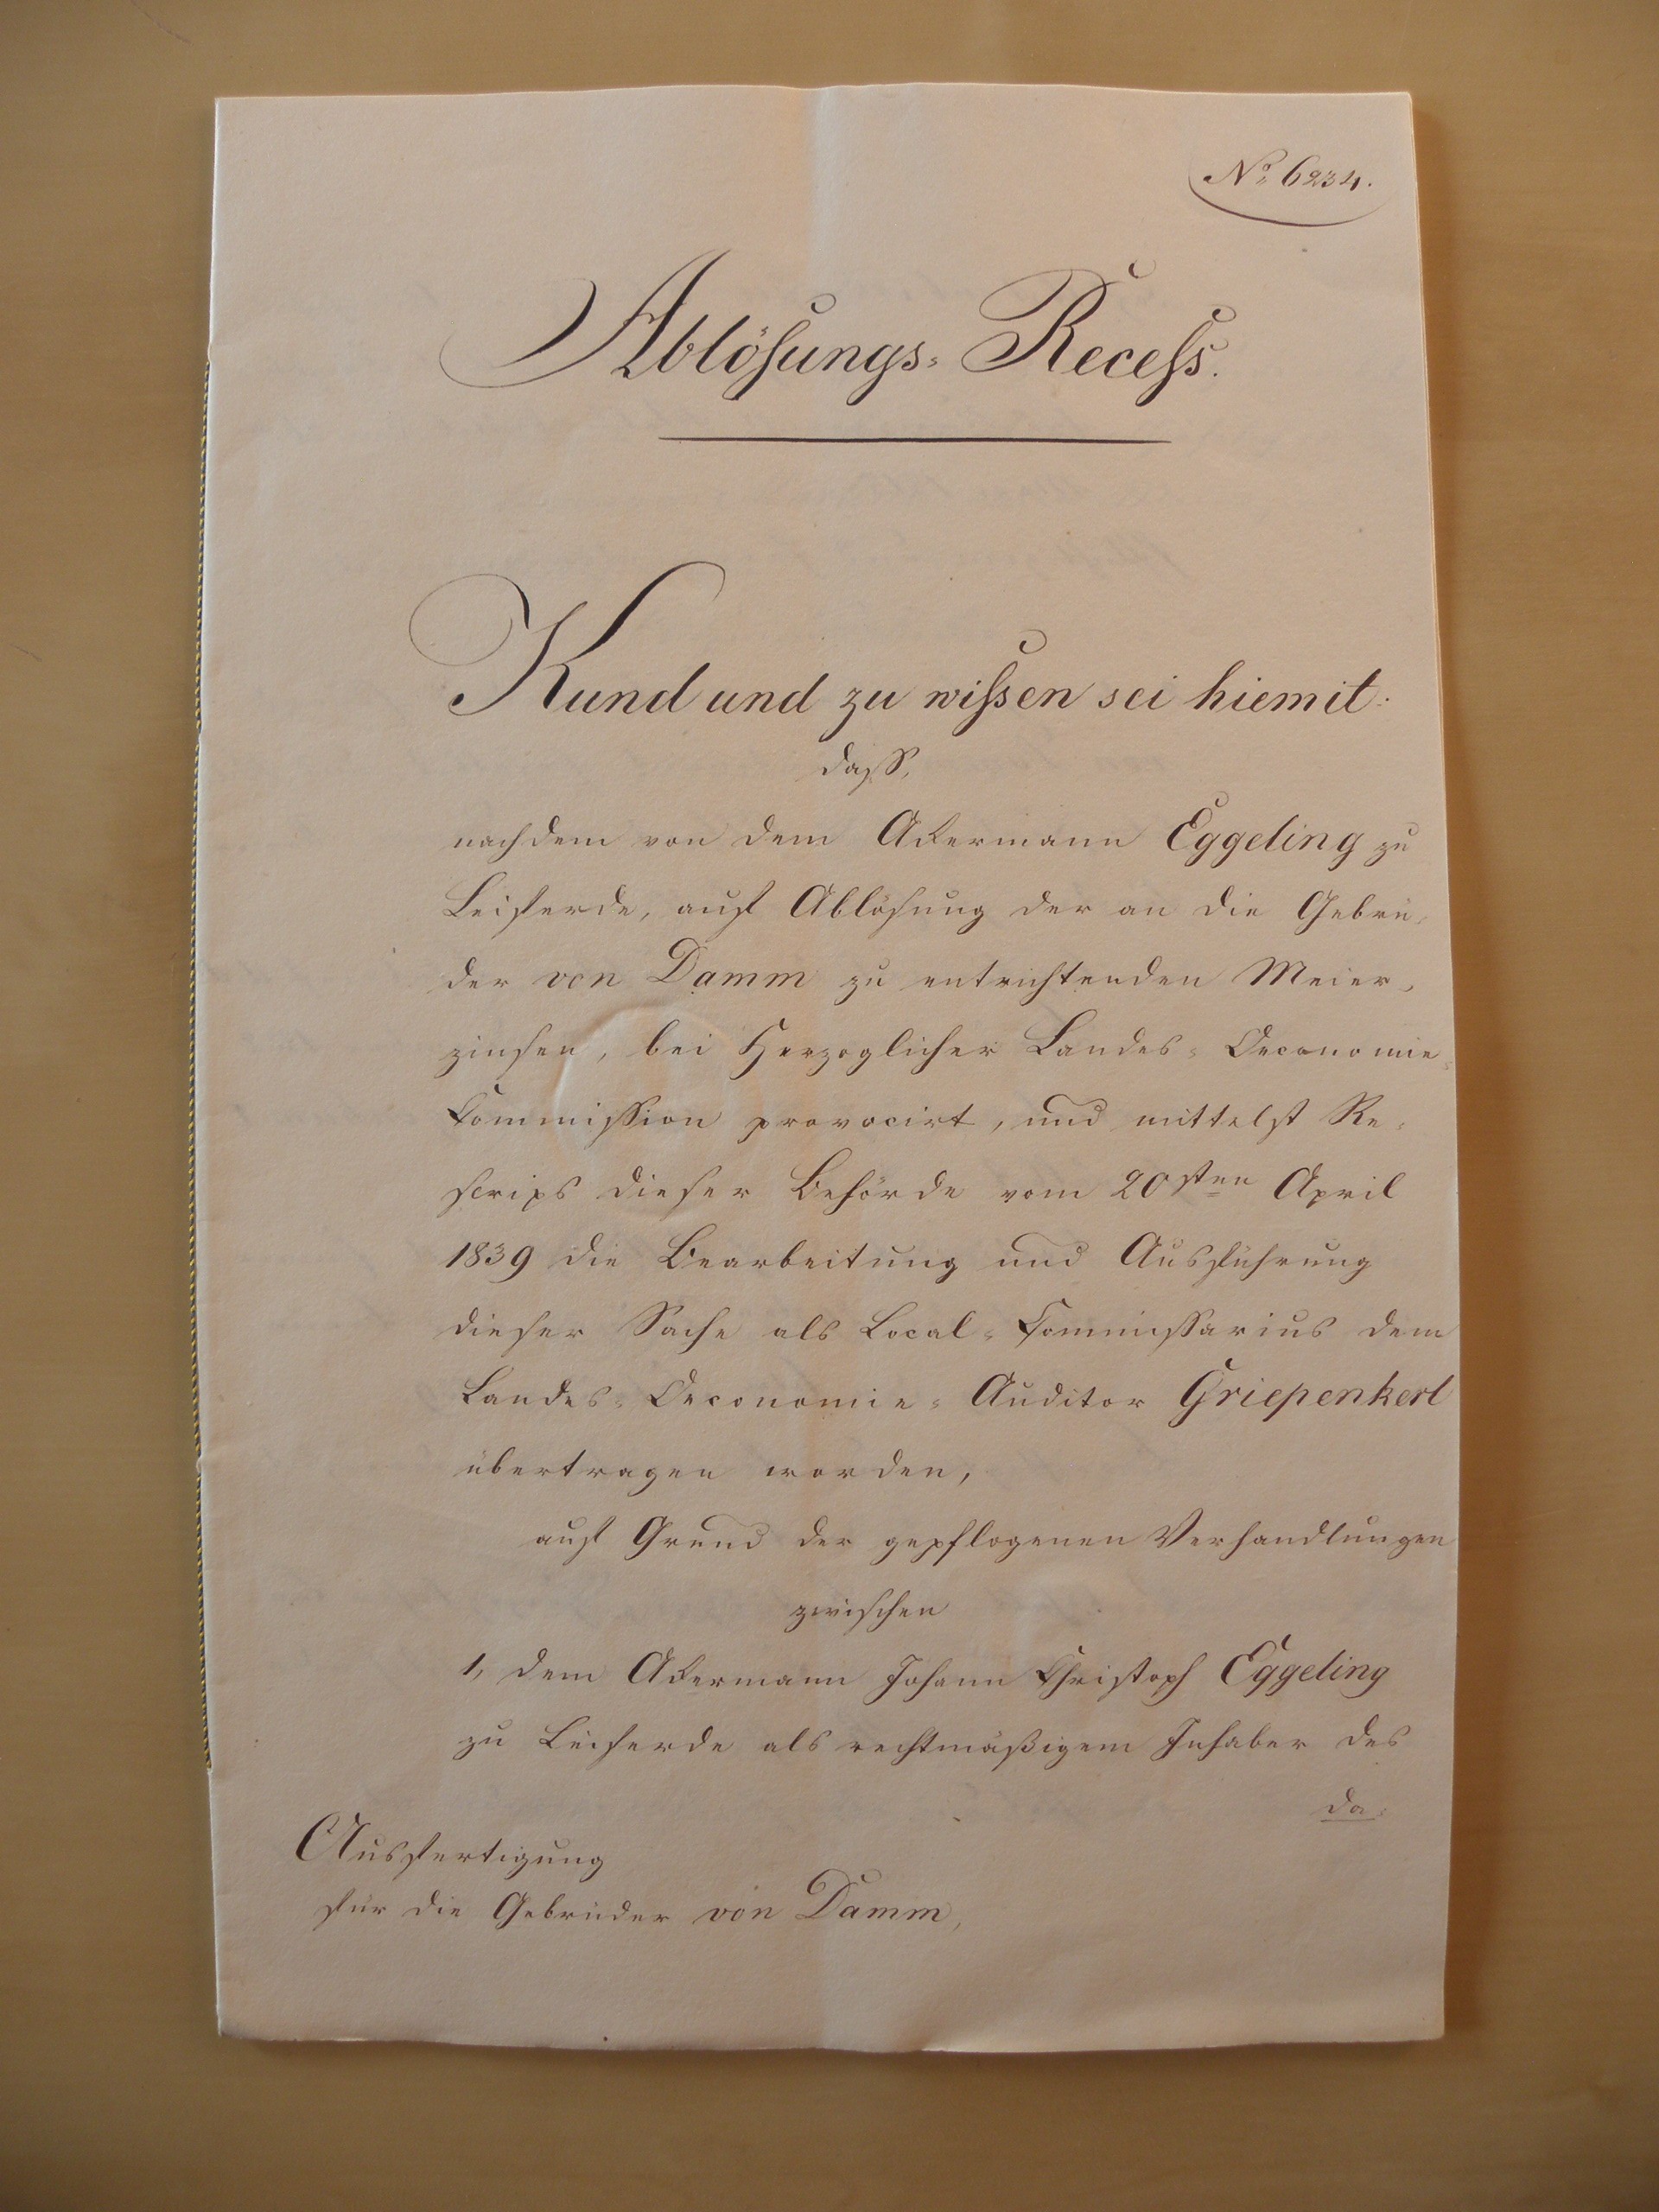 No 6234.
Ablösungs-Recess.
Kund und zu wissen sei hiemit:
daß,
nachdem von dem Ackermann Eggeling zu
Leiferde, auf Ablösung der an die Gebrü-
der von Damm zu entrichtenden Meier-
zinsen, bei Herzoglicher Landes-Oeconomie-
Commission provocirt, und mittelst Re-
scrips dieser Behörde vom 20sten April
1839 die Bearbeitung und Ausführung
dieser Sache als Local-Commissarius dem
Landes-Oeconomie-Auditor Griepenkerl
übertragen worden,
auf Grund der gepflogenen Verhandlungen
zwischen
1, dem Ackermann Johann Christoph Eggeling
zu Leiferde als rechtmäßigem Inhaber des
da-
Ausfertigung
für die Gebrüder von Damm,